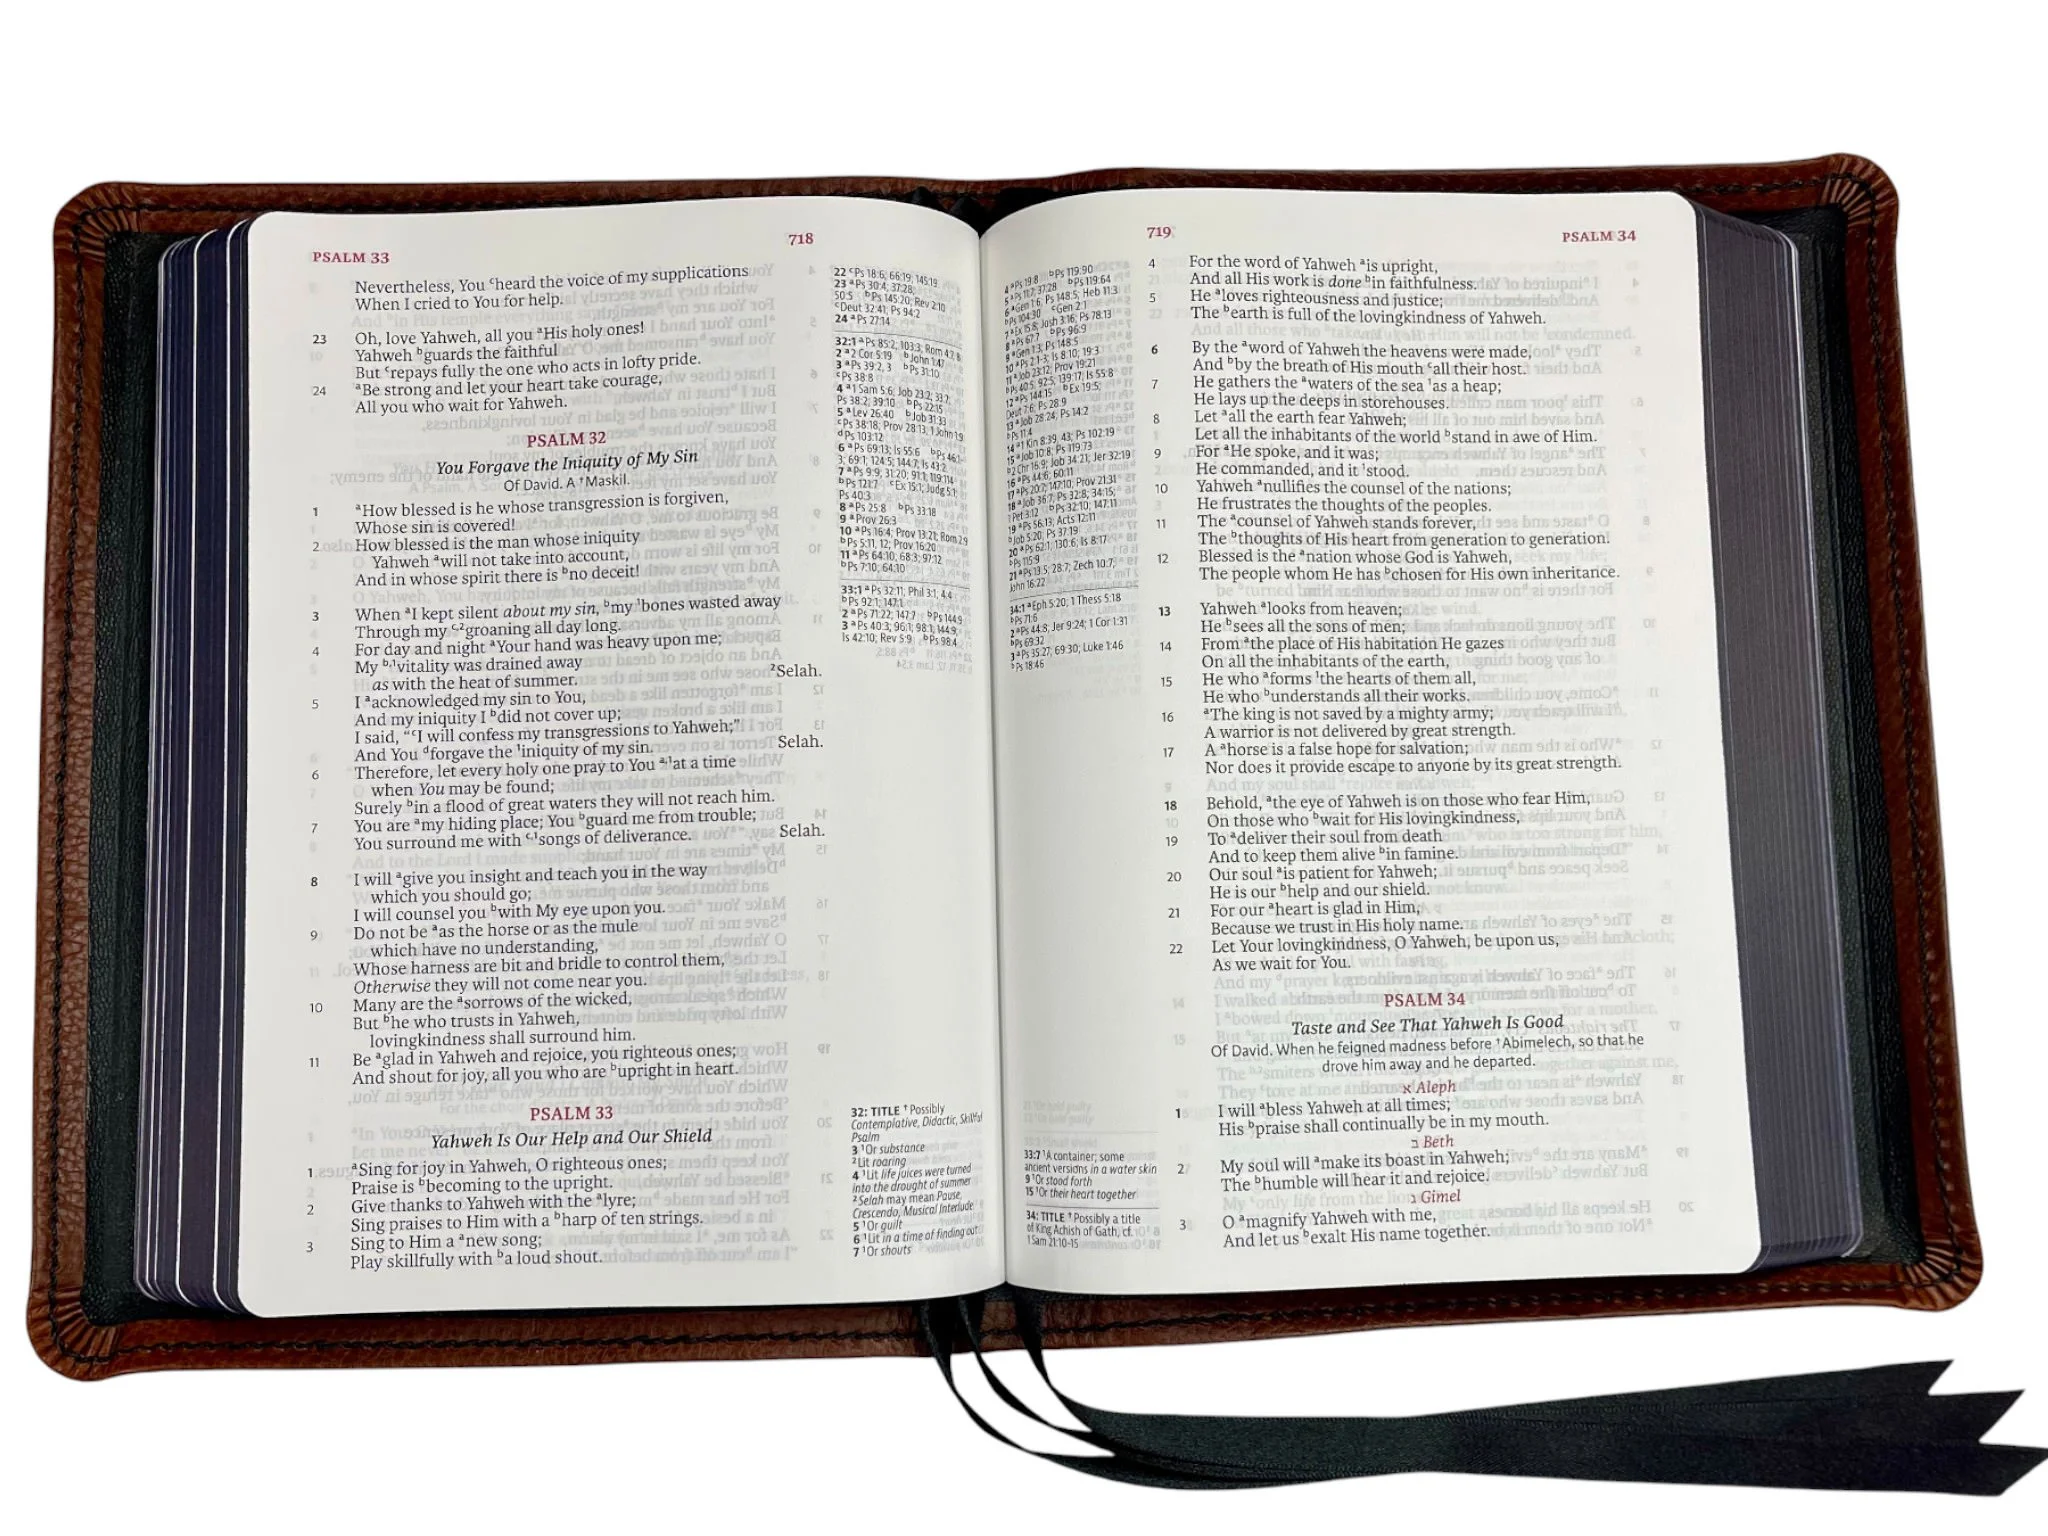 PSALM 33
718
Nevertheless, You ᶜheard the voice of my supplications
When I cried to You for help.
23 Oh, love Yahweh, all you ᵃHis holy ones!
Yahweh ᵇguards the faithful
But ᶜrepays fully the one who acts in lofty pride.
24 ᵃBe strong and let your heart take courage,
All you who wait for Yahweh.
PSALM 32
You Forgave the Iniquity of My Sin
Of David. A †Maskil.
1 ᵃHow blessed is he whose transgression is forgiven,
Whose sin is covered!
2 How blessed is the man whose iniquity
Yahweh ᵃwill not take into account,
And in whose spirit there is ᵇno deceit!
3 When ᵃI kept silent about my sin, ᵇmy ¹bones wasted away
Through my ᶜ,²groaning all day long.
4 For day and night ᵃYour hand was heavy upon me;
My ᵇ,¹vitality was drained away
as with the heat of summer. ²Selah.
5 I ᵃacknowledged my sin to You,
And my iniquity I ᵇdid not cover up;
I said, "ᶜI will confess my transgressions to Yahweh;"
And You ᵈforgave the ¹iniquity of my sin. Selah.
6 Therefore, let every holy one pray to You ᵃ,¹at a time
when You may be found;
Surely ᵇin a flood of great waters they will not reach him.
7 You are ᵃmy hiding place; You ᵇguard me from trouble;
You surround me with ᶜ,¹songs of deliverance. Selah.
8 I will ᵃgive you insight and teach you in the way
which you should go;
I will counsel you ᵇwith My eye upon you.
9 Do not be ᵃas the horse or as the mule
which have no understanding,
Whose harness are bit and bridle to control them,
Otherwise they will not come near you.
10 Many are the ᵃsorrows of the wicked,
But ᵇhe who trusts in Yahweh,
lovingkindness shall surround him.
11 Be ᵃglad in Yahweh and rejoice, you righteous ones;
And shout for joy, all you who are ᵇupright in heart.
PSALM 33
Yahweh Is Our Help and Our Shield
1 ᵃSing for joy in Yahweh, O righteous ones;
Praise is ᵇbecoming to the upright.
2 Give thanks to Yahweh with the ᵃlyre;
Sing praises to Him with a ᵇharp of ten strings.
3 Sing to Him a ᵃnew song;
Play skillfully with ᵇa loud shout.
22 ᶜPs 18:6; 66:19; 145:19
23 ᵃPs 30:4; 37:28;
50:5 ᵇPs 145:20; Rev 2:10
ᶜDeut 32:41; Ps 94:2
24 ᵃPs 27:14
32:1 ᵃPs 85:2; 103:3; Rom 4:7, 8
2 ᵃ2 Cor 5:19 ᵇJohn 1:47
3 ᵃPs 39:2, 3 ᵇPs 31:10
ᶜPs 38:8
4 ᵃ1 Sam 5:6; Job 23:2; 33:7;
Ps 38:2; 39:10 ᵇPs 22:15
5 ᵃLev 26:40 ᵇJob 31:33
ᶜPs 38:18; Prov 28:13; 1 John 1:9
ᵈPs 103:12
6 ᵃPs 69:13; Is 55:6 ᵇPs 46:1-
3; 69:1; 124:5; 144:7; Is 43:2
7 ᵃPs 9:9; 31:20; 91:1; 119:114
ᵇPs 121:7 ᶜEx 15:1; Judg 5:1;
Ps 40:3
8 ᵃPs 25:8 ᵇPs 33:18
9 ᵃProv 26:3
10 ᵃPs 16:4; Prov 13:21; Rom 2:9
ᵇPs 5:11, 12; Prov 16:20
11 ᵃPs 64:10; 68:3; 97:12
ᵇPs 7:10; 64:10
33:1 ᵃPs 32:11; Phil 3:1; 4:4
ᵇPs 92:1; 147:1
2 ᵃPs 71:22; 147:7 ᵇPs 144:9
3 ᵃPs 40:3; 96:1; 98:1; 144:9;
Is 42:10; Rev 5:9 ᵇPs 98:4
32: TITLE †Possibly
Contemplative, Didactic, Skillful
Psalm
3 ¹Or substance
²Lit roaring
4 ¹Lit life juices were turned
into the drought of summer
²Selah may mean Pause,
Crescendo, Musical Interlude
5 ¹Or guilt
6 ¹Lit in a time of finding out
7 ¹Or shouts
719
PSALM 34
4 ᵃPs 19:8 ᵇPs 119:90
5 ᵃPs 11:7; 37:28 ᵇPs 119:64
6 ᵃGen 1:6; Ps 148:5; Heb 11:3
ᵇPs 104:30 ᶜGen 2:1
7 ᵃEx 15:8; Josh 3:16; Ps 78:13
8 ᵃPs 67:7 ᵇPs 96:9
9 ᵃGen 1:3; Ps 148:5
10 ᵃPs 2:1-3; Is 8:10; 19:3
11 ᵃJob 23:12; Prov 19:21
ᵇPs 40:5; 92:5; 139:17; Is 55:8
12 ᵃPs 144:15 ᵇEx 19:5;
Deut 7:6; Ps 28:9
13 ᵃJob 28:24; Ps 14:2
ᵇPs 11:4
14 ᵃ1 Kin 8:39, 43; Ps 102:19
15 ᵃJob 10:8; Ps 119:73
ᵇ2 Chr 16:9; Job 34:21; Jer 32:19
16 ᵃPs 44:6; 60:11
17 ᵃPs 20:7; 147:10; Prov 21:31
18 ᵃJob 36:7; Ps 32:8; 34:15;
1 Pet 3:12 ᵇPs 32:10; 147:11
19 ᵃPs 56:13; Acts 12:11
ᵇJob 5:20; Ps 37:19
20 ᵃPs 62:1; 130:6; Is 8:17
ᵇPs 115:9
21 ᵃPs 13:5; 28:7; Zech 10:7;
John 16:22
34:1 ᵃEph 5:20; 1 Thess 5:18
ᵇPs 71:6
2 ᵃPs 44:8; Jer 9:24; 1 Cor 1:31
ᵇPs 69:32
3 ᵃPs 35:27; 69:30; Luke 1:46
ᵇPs 18:46
33:7 ¹A container; some
ancient versions in a water skin
9 ¹Or stood forth
15 ¹Or their heart together
34: TITLE †Possibly a title
of King Achish of Gath, cf.
1 Sam 21:10-15
4 For the word of Yahweh ᵃis upright,
And all His work is done ᵇin faithfulness.
5 He ᵃloves righteousness and justice;
The ᵇearth is full of the lovingkindness of Yahweh.
6 By the ᵃword of Yahweh the heavens were made,
And ᵇby the breath of His mouth ᶜall their host.
7 He gathers the ᵃwaters of the sea ¹as a heap;
He lays up the deeps in storehouses.
8 Let ᵃall the earth fear Yahweh;
Let all the inhabitants of the world ᵇstand in awe of Him.
9 For ᵃHe spoke, and it was;
He commanded, and it ¹stood.
10 Yahweh ᵃnullifies the counsel of the nations;
He frustrates the thoughts of the peoples.
11 The ᵃcounsel of Yahweh stands forever,
The ᵇthoughts of His heart from generation to generation.
12 Blessed is the ᵃnation whose God is Yahweh,
The people whom He has ᵇchosen for His own inheritance.
13 Yahweh ᵃlooks from heaven;
He ᵇsees all the sons of men;
14 From ᵃthe place of His habitation He gazes
On all the inhabitants of the earth,
15 He who ᵃforms ¹the hearts of them all,
He who ᵇunderstands all their works.
16 ᵃThe king is not saved by a mighty army;
A warrior is not delivered by great strength.
17 A ᵃhorse is a false hope for salvation;
Nor does it provide escape to anyone by its great strength.
18 Behold, ᵃthe eye of Yahweh is on those who fear Him,
On those who ᵇwait for His lovingkindness,
19 To ᵃdeliver their soul from death
And to keep them alive ᵇin famine.
20 Our soul ᵃis patient for Yahweh;
He is our ᵇhelp and our shield.
21 For our ᵃheart is glad in Him,
Because we trust in His holy name.
22 Let Your lovingkindness, O Yahweh, be upon us,
As we wait for You.
PSALM 34
Taste and See That Yahweh Is Good
Of David. When he feigned madness before †Abimelech, so that he
drove him away and he departed.
א Aleph
1 I will ᵃbless Yahweh at all times;
His ᵇpraise shall continually be in my mouth.
ב Beth
2 My soul will ᵃmake its boast in Yahweh;
The ᵇhumble will hear it and rejoice.
ג Gimel
3 O ᵃmagnify Yahweh with me,
And let us ᵇexalt His name together.